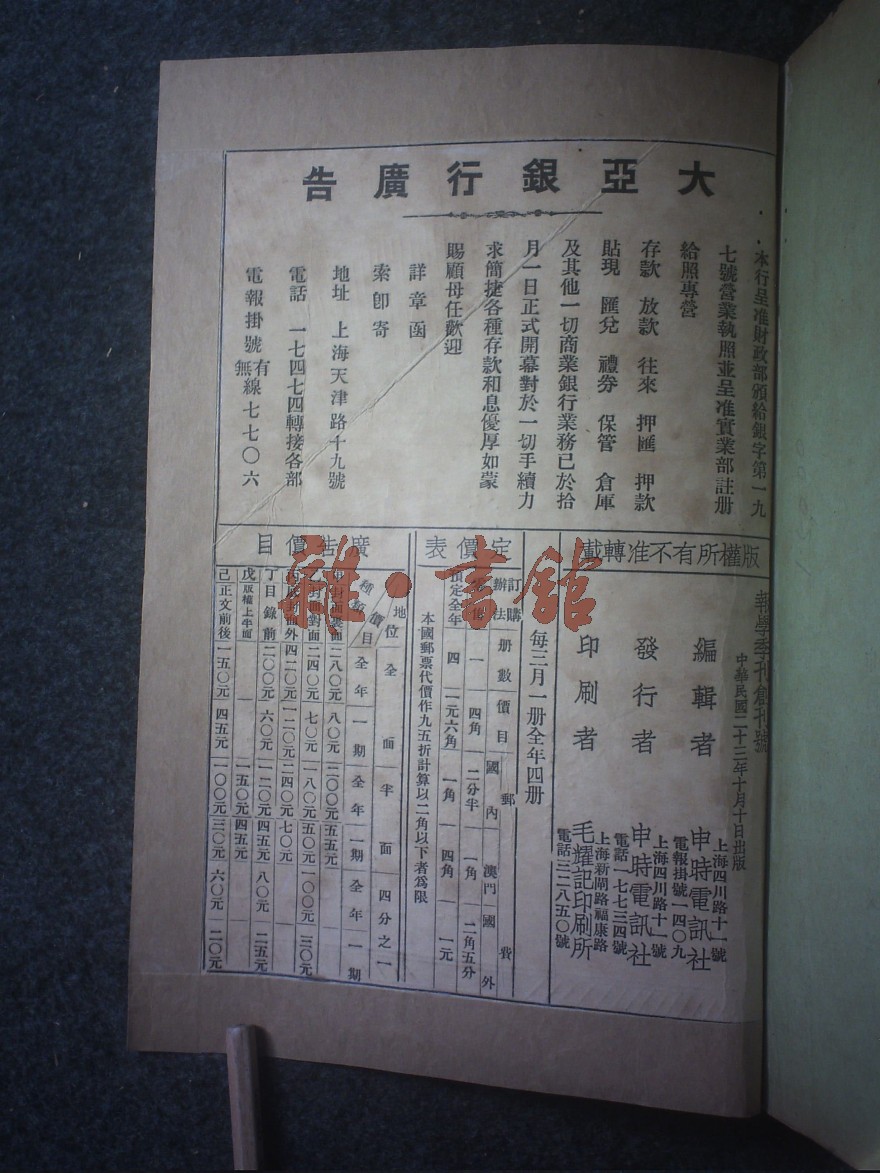 大亞銀行廣告
本行呈准財政部頒給銀字第一九
七號營業執照並呈准實業部註册
給照專營
存款 放款 往來 押匯 押款
貼現 匯兌 禮券 保管 倉庫
及其他一切商業銀行業務已於拾
月一日正式開幕對於一切手續力
求簡捷各種存款利息優厚如蒙
賜顧毋任歡迎
詳章函
索卽寄
地址 上海天津路十九號
電話 一七四七四轉接各部
電報掛號有無線七七〇六
報學季刊創刊號
中華民國二十三年十月十日出版
版權所有不准轉載
編輯者 申時電訊社
上海四川路十一號
電報掛號一四〇九
發行者 申時電訊社
上海四川路十一號
電話一七七三四號
印刷者 毛耀記印刷所
上海新閘路福康路
電話三二八五〇號
每三月一册全年四册
定價表
訂購辦法 册數 價目 郵費 國內 澳門 國外
一 四角 二分半 一角 二角五分
預定全年 四 一元六角 一角 四角 一元
本國郵票代價作九五折計算以二角以下者爲限
廣告價目
地位 價目 種類 全面 半面 四分之一
全年 一期 全年 一期 全年 一期
二八〇元 八〇元 二〇〇元 五五元
乙 封面對面 二四〇元 七〇元 一八〇元 五〇元 一〇〇元 三〇元
封面外 四二〇元 一二〇元 二四〇元 七〇元
丁 目錄前 二〇〇元 六〇元 一二〇元 四五元 八〇元 二五元
戊 版權上半面 一 一 一五〇元 四五元
己 正文前後 一五〇元 四五元 一〇〇元 三〇元 六〇元 二〇元
雜·書館